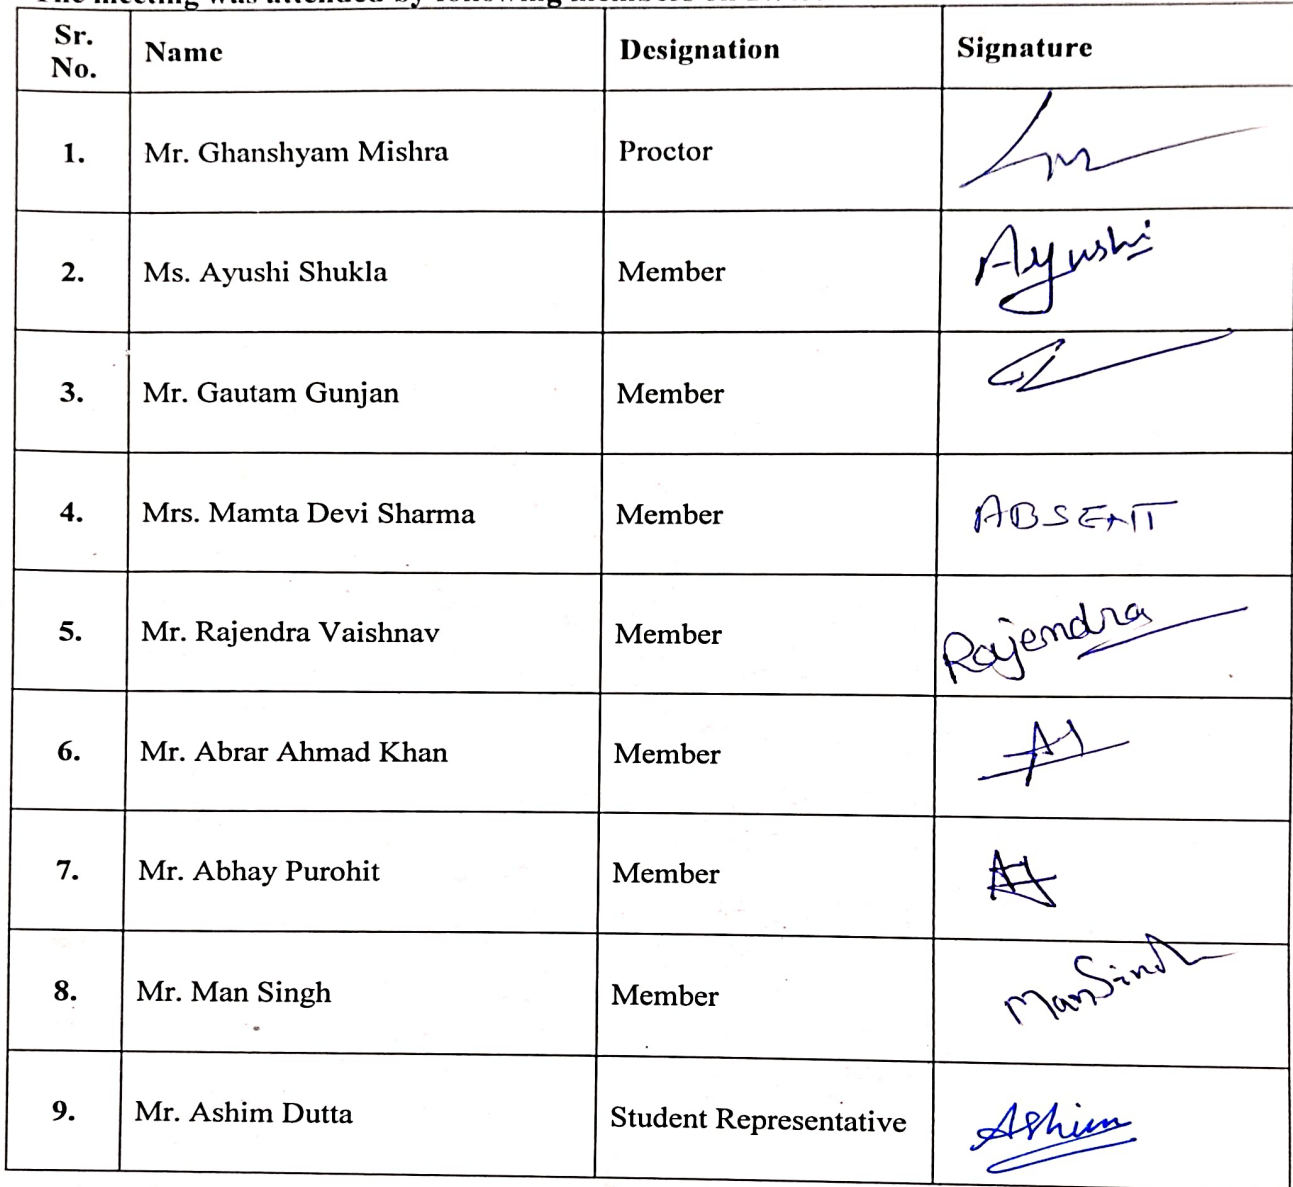 The meeting was attended by following members
Sr. No. Name Designation Signature
1. Mr. Ghanshyam Mishra Proctor
2. Ms. Ayushi Shukla Member Ayushi
3. Mr. Gautam Gunjan Member
4. Mrs. Mamta Devi Sharma Member ABSENT
5. Mr. Rajendra Vaishnav Member Rajendra
6. Mr. Abrar Ahmad Khan Member
7. Mr. Abhay Purohit Member
8. Mr. Man Singh Member ManSingh
9. Mr. Ashim Dutta Student Representative Ashim